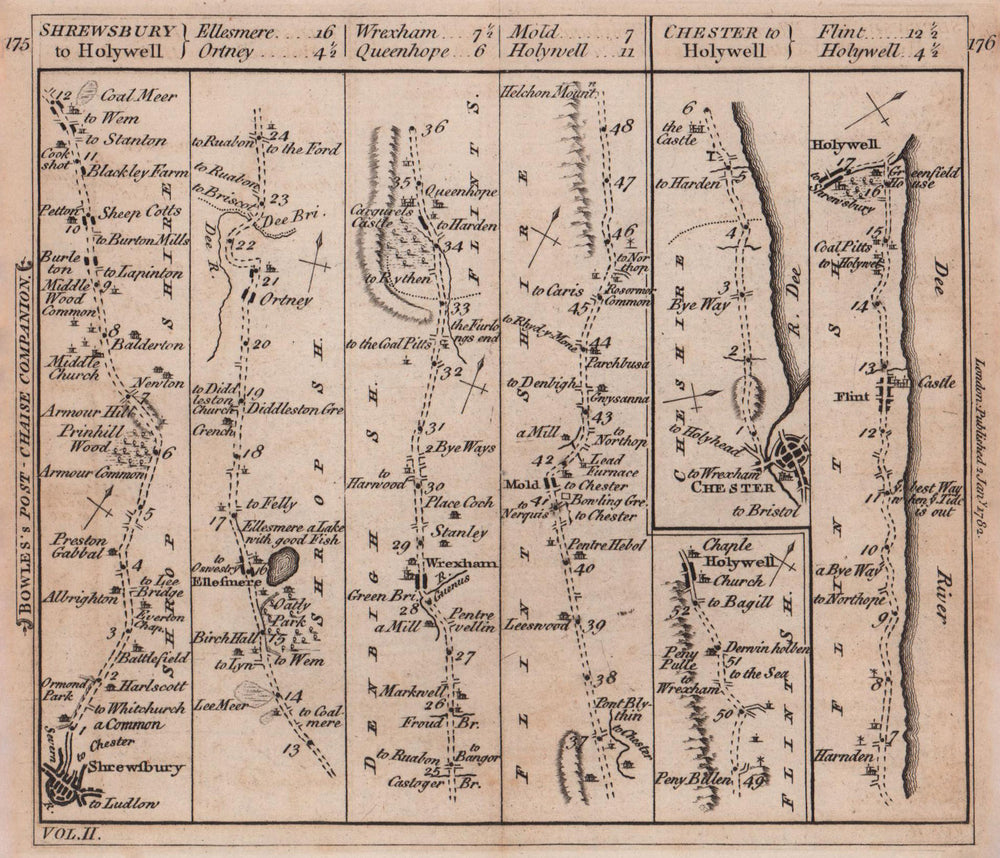 175
SHREWSBURY
to Holywell
Ellesmere .... 16
Ortney ........ 4 1/2
Wrexham ...... 7 1/2
Queenhope ... 6
Mold .......... 7
Holywell ..... 11
CHESTER to
Holywell
Flint ....... 12 1/2
Holywell ... 4 1/2
176
BOWLES's POST-CHAISE COMPANION.
12
Coal Meer
to Wem
to Stanton
Cook
shot
11
Blackley Farm
Petton
Sheep Cotts
10
to Burton Mills
Burle
ton
to Lapinton
Middle
9
Wood
Common
8
Balderton
Middle
Church
Newton
7
Armour Hill
Prinhill
Wood
6
Armour Common
5
Preston
Gabbal
4
to Lee
Bridge
Albrighton
Everton
Chap.
3
Battlefield
Ormond
Park
2
Harlscott
to Whitchurch
a Common
1
to
Chester
Severn
R.
Shrewsbury
to Ludlow
SHROPSHIRE
24
to Ruabon
to the Ford
to Ruabon
23
to Briscol
Dee Bri.
22
Dee R.
21
Ortney
20
19
to Didd
leston
Church
Diddleston Gre
Crench
18
to Felly
17
Ellesmere a Lake
with good Fish
to
Oswestry
16
Ellesmere
Oatly
Park
Birch Hall
15
to Lyn
to Wem
14
Lee Meer
to Coal-
mere
13
SHROPSH.
36
35
Queenhope
Cacqurels
Castle
to Harden
34
to Rythen
33
the Furlo
ngs end
to the Coal Pitts
32
31
2 Bye Ways
to
Harwood
30
Place Coch
Stanley
29
Wrexham
R. Guenus
Green Bri.
28
a Mill
Pentre
vellin
27
Markwell
26
Froud
Br.
to Ruabon
to
Bangor
25
Castoger
Br.
DENBIGHSH.
FLINTS.
Helchon Mount.n
48
47
46
to Nor
thop
to Caris
Rosormor
Common
45
to Rhyd y Mone
44
Parchbusa
to Denbigh
Gwysanna
43
a Mill
to
Northop
42
Lead
Furnace
Mold
to Chester
41
Bowling Gre.
to
Nerquis
to Chester
Pentre Hebol
40
Leeswood
39
38
Pont Bly
thin
37
to Chester
FLINTSHIRE
6
the
Castle
5
to Harden
4
3
Bye Way
2
1
to Holyhead
to Wrexham
CHESTER
to Bristol
R. Dee
CHESHIRE
Chaple
Holywell
Church
52
to Bagill
Derwin holben
Peny
Pulle
51
to the Sea
to
Wrexham
50
Peny Billen
49
FLINTSH.
Holywell
17
to
Shrewsbury
Greenfield
House
16
15
Coal Pitts
to Holywel
14
13
Castle
Flint
12
11
ye best Way
when ye Tide
is out
10
a Bye Way
to Northope
9
8
7
Harnden
FLINTSH.
Dee
River
London: Published 2 Jan.y 1782.
VOL. II.